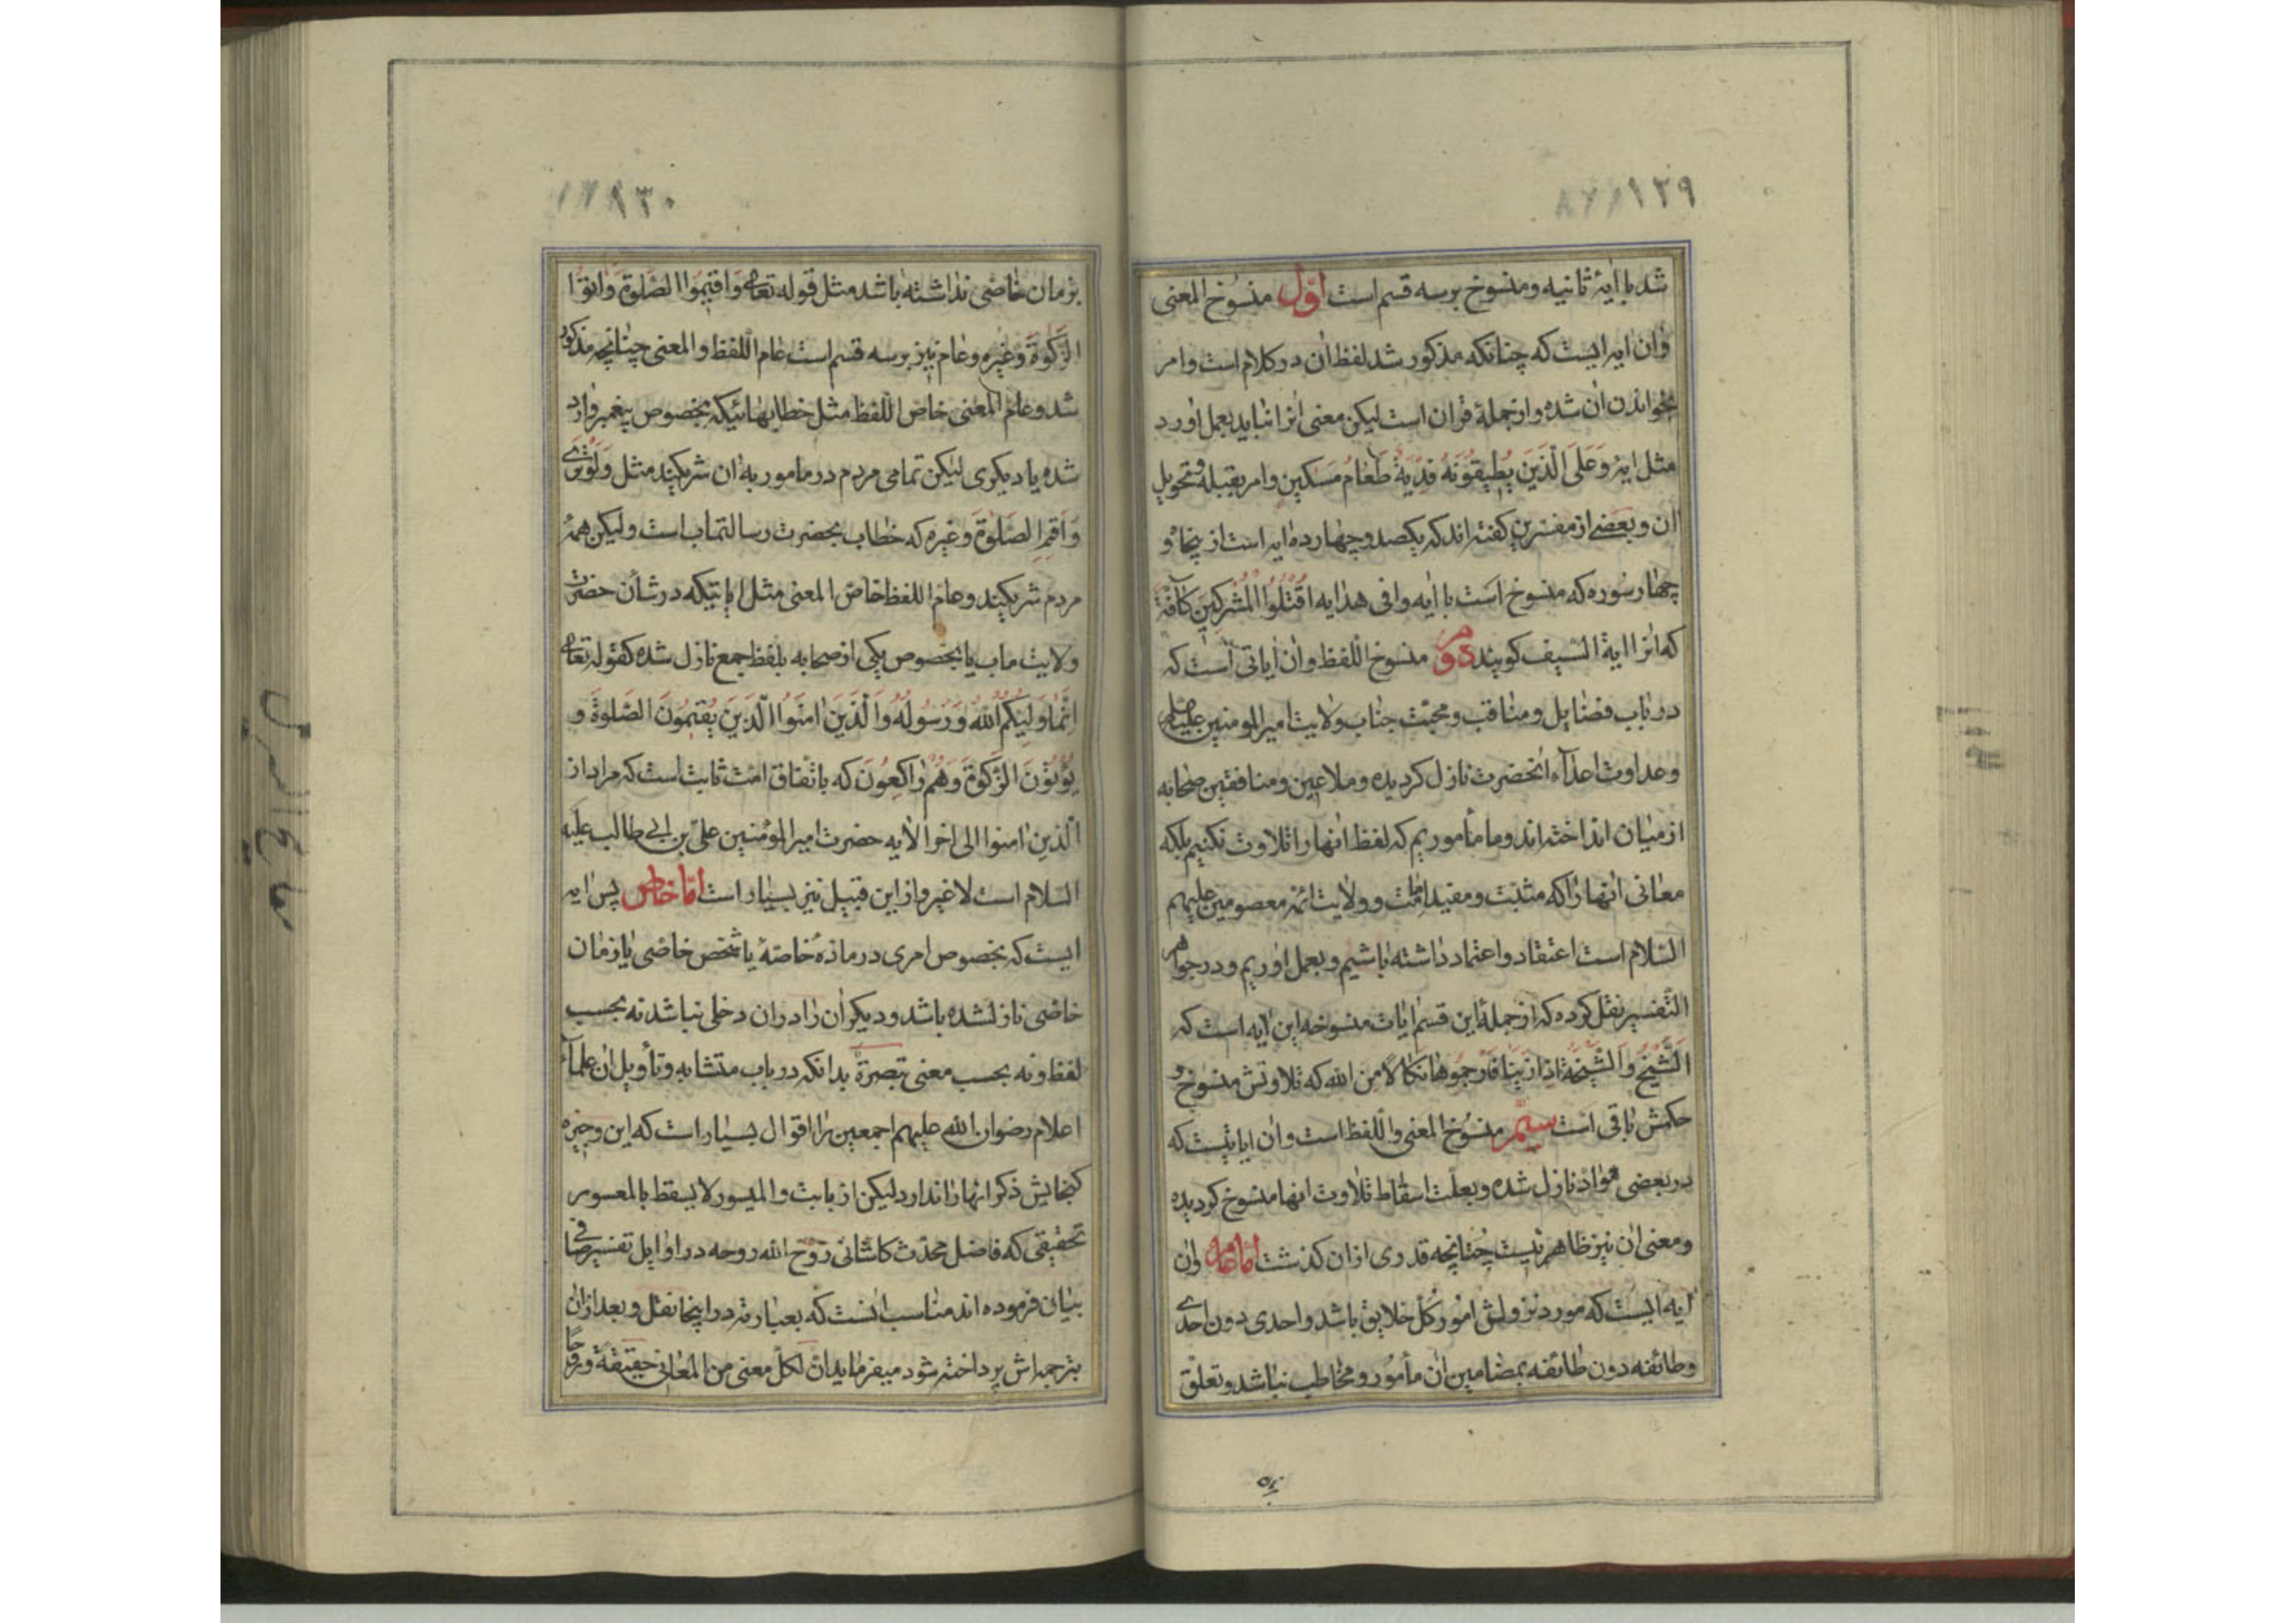 ١٢٩
شد بایهٔ ثانیه و منسوخ بر سه قسم است اوّل منسوخ المعنی
وان ایه ایست که چنانکه مذکور شد لفظ ان در کلام است و امر
بخواندن ان شده و از جملهٔ قران است لیکن معنی انرا نباید بعمل اورد
مثل ایهٔ وَعَلَی الَّذینَ یُطیقُونَهُ فِدْیَةٌ طَعامُ مَسَکین و امر بقبله و تحویل
ان و بعضی از مفسرین کفته اند که یکصد و چهارده ایه است از پنجاه و
چهار سوره که منسوخ است با ایه وافی هدایه اقْتُلُوا الْمُشْرِکینَ کآفَّةً
که انرا ایة السّیف کویند دویم منسوخ اللفظ وان ایاتی است که
در باب فضایل و مناقب و محبّت جناب ولایت امیرالمومنین علیه السلم
و عداوت اعدآء انحضرت نازل کردیده و ملاعین و منافقین صحابه
از میان انداخته اند و ما مأموریم که لفظ انها را تلاوت نکنیم بلکه
معانی انها را که مثبت و مفید امامت و ولایت ائمه معصومین علیهم
السّلام است اعتقاد و اعتماد داشته باشیم و بعمل اوریم و در جواهر
التّفسیر نقل کرده که از جملهٔ این قسم ایات منسوخه این ایه است که
الشَّیْخُ وَالشَّیْخَةُ اِذا زَنَیا فَارْجُمُوهُما نَکالًا مِنَ الله که تلاوتش منسوخ و
حکمش باقی است سیّم منسوخ المعنی واللّفظ است وان ایاتیست که
در بعضی مواد نازل شده و بعلّت اسقاط تلاوت انها منسوخ کردیده
و معنی ان نیز ظاهر نیست چنانچه قدری از ان کذشت امّا عام وان
ایه ایست که مورد نزولش امور کلّ خلایق باشد و احدی دون احدی
و طائفه دون طائفه بمضامین ان مأمور و مخاطب نباشد و تعلّق
١٣٠
بزمان خاصّی نداشته باشد مثل قوله تعالی وَاَقیمُوا الصَّلوةَ وَاتُوا
الزَّکوةَ و غیره و عام نیز بر سه قسم است عام اللّفظ والمعنی چنانچه مذکور
شد و عام المعنی خاص اللّفظ مثل خطابهائیکه بخصوص پیغمبر وارد
شده یا دیکری لیکن تمامی مردم در مامور به ان شریکند مثل وَلَوْتَری
وَاَقِمِ الصَّلوةَ و غیره که خطاب بحضرت رسالتماب است ولیکن همهٔ
مردم شریکیند و عام اللفظ خاصّ المعنی مثل ایاتیکه در شأن حضرت
ولایت ماب یا بخصوص یکی از صحابه بلفظ جمع نازل شده کقوله تعالی
اِنَّما وَلِیُّکُمُ اللهُ وَرَسُولُهُ وَالَّذینَ امَنُوا الَّذینَ یُقیمُونَ الصَّلوةَ وَ
یُؤْتُونَ الزَّکوةَ وَهُمْ راکِعُونَ که باتّفاق امّت ثابت است که مراد از
الّذین امنوا الی اخر الایه حضرت امیرالمؤمنین علیّ بن ابی طالب علیه
السّلام است لا غیر و از این قبیل نیز بسیار است امّا خاصّ پس ایه
ایست که بخصوص امری در مادهٔ خاصّهٔ یا شخص خاصّی یا زمان
خاصّی نازلشده باشد و دیکران را در ان دخلی نباشد نه بحسب
لفظ و نه بحسب معنی تبصرة بدانکه در باب متشابه و تأویل ان علمآء
اعلام رضوان الله علیهم اجمعین را اقوال بسیار است که این وجیزه
کنجایش ذکر انها را ندارد لیکن از بابت والمیسور لا یسقط بالمعسور
تحقیقی که فاضل محدّث کاشانی روّح الله روحه در اوایل تفسیر صافی
بیان فرموده اند مناسب انست که بعبارته در اینجا نقل و بعد از ان
بترجمه اش پرداخته شود میفرماید ان لکلّ معنی من المعانی حقیقةً وروحًا